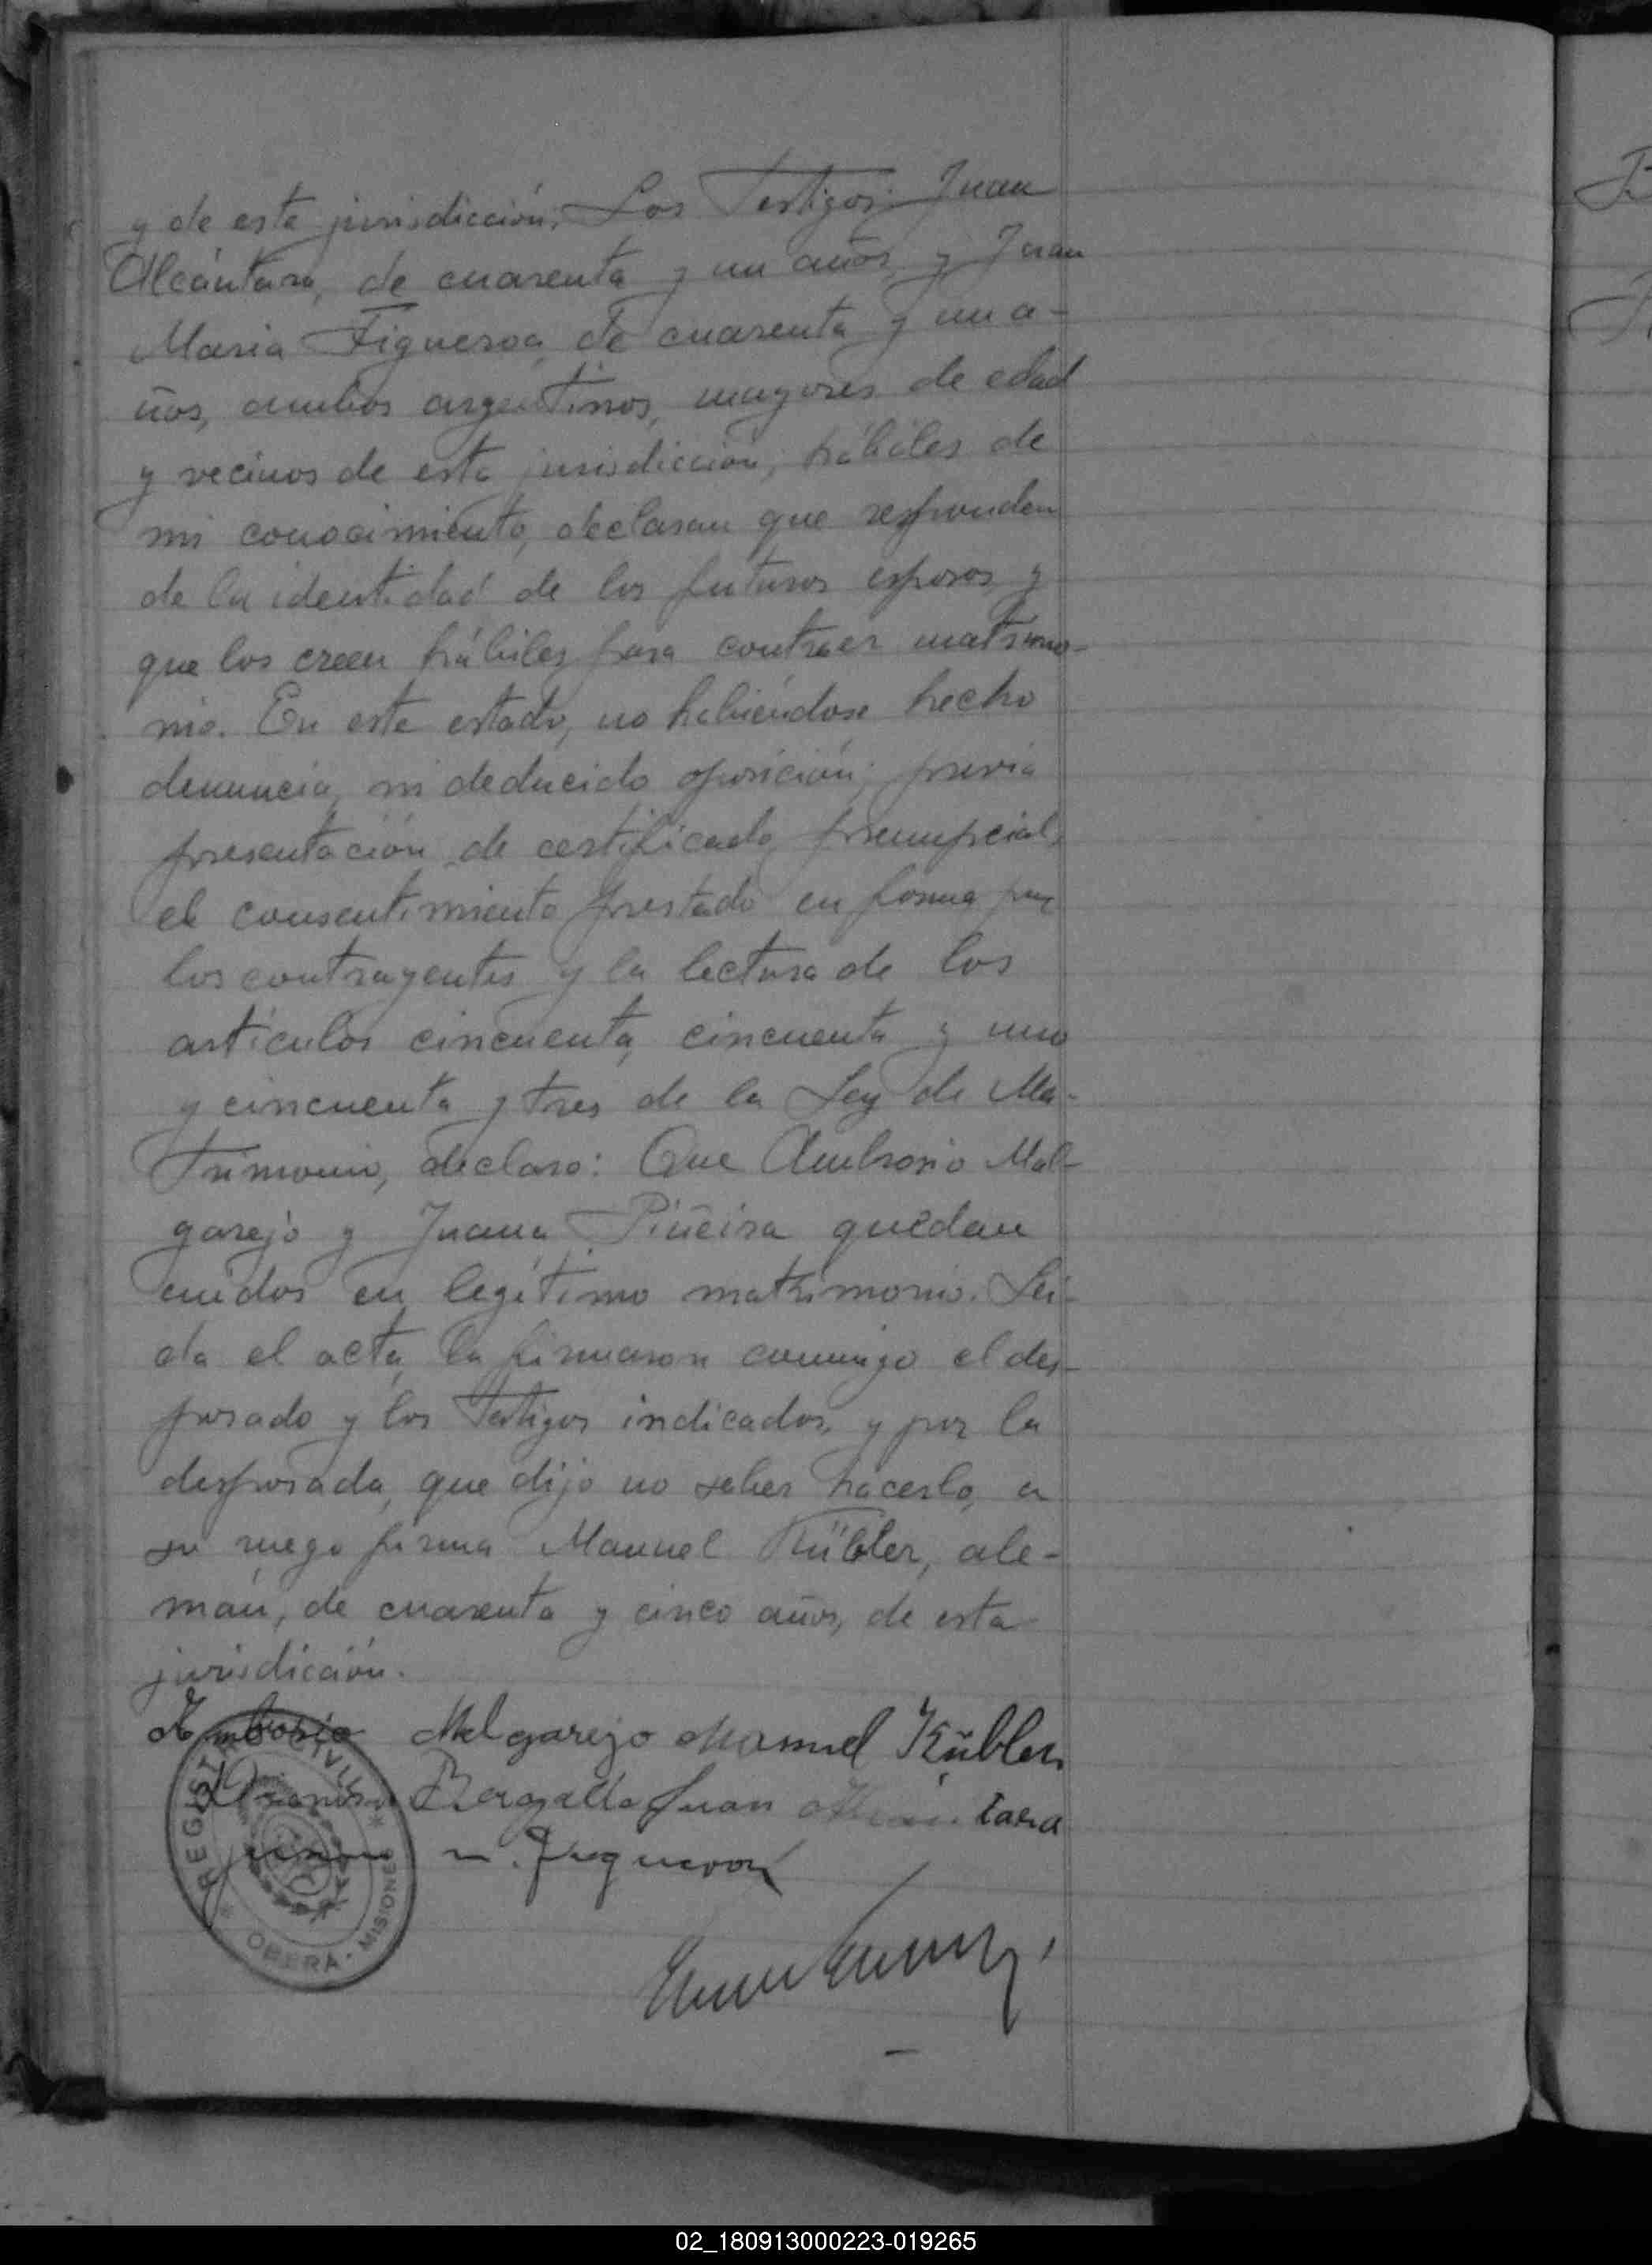 y de esta jurisdicción. Los Testigos: Juan
Alcántara, de cuarenta y un años, y Juan
Maria Figueroa, de cuarenta y un a-
ños, ambos argentinos, mayores de edad
y vecinos de esta jurisdicción, hábiles de
mi conocimiento, declaran que responden
de la identidad de los futuros esposos y
que los creen hábiles para contraer matrimo-
nio. En este estado, no habiéndose hecho
denuncia, ni deducido oposición; previa
presentación de certificado prenupcial,
el consentimiento prestado en forma por
los contrayentes y la lectura de los
artículos cincuenta, cincuenta y uno
y cincuenta y tres de la Ley de Ma-
trimonio, declaro: Que Ambrosio Mel-
garejo y Juana Piñeira quedan
unidos en legítimo matrimonio. Leí-
da el acta, la firmaron conmigo el des-
posado y los testigos indicados, y por la
desposada, que dijo no saber hacerlo, a
su ruego firma Manuel Kübler, ale-
mán, de cuarenta y cinco años, de esta
jurisdicción.
Ambrosio Melgarejo Manuel Kübler
Juan Alcántara
Juan M. Figueroa
REGISTRO CIVIL
OBERA - MISIONES
02_180913000223-019265